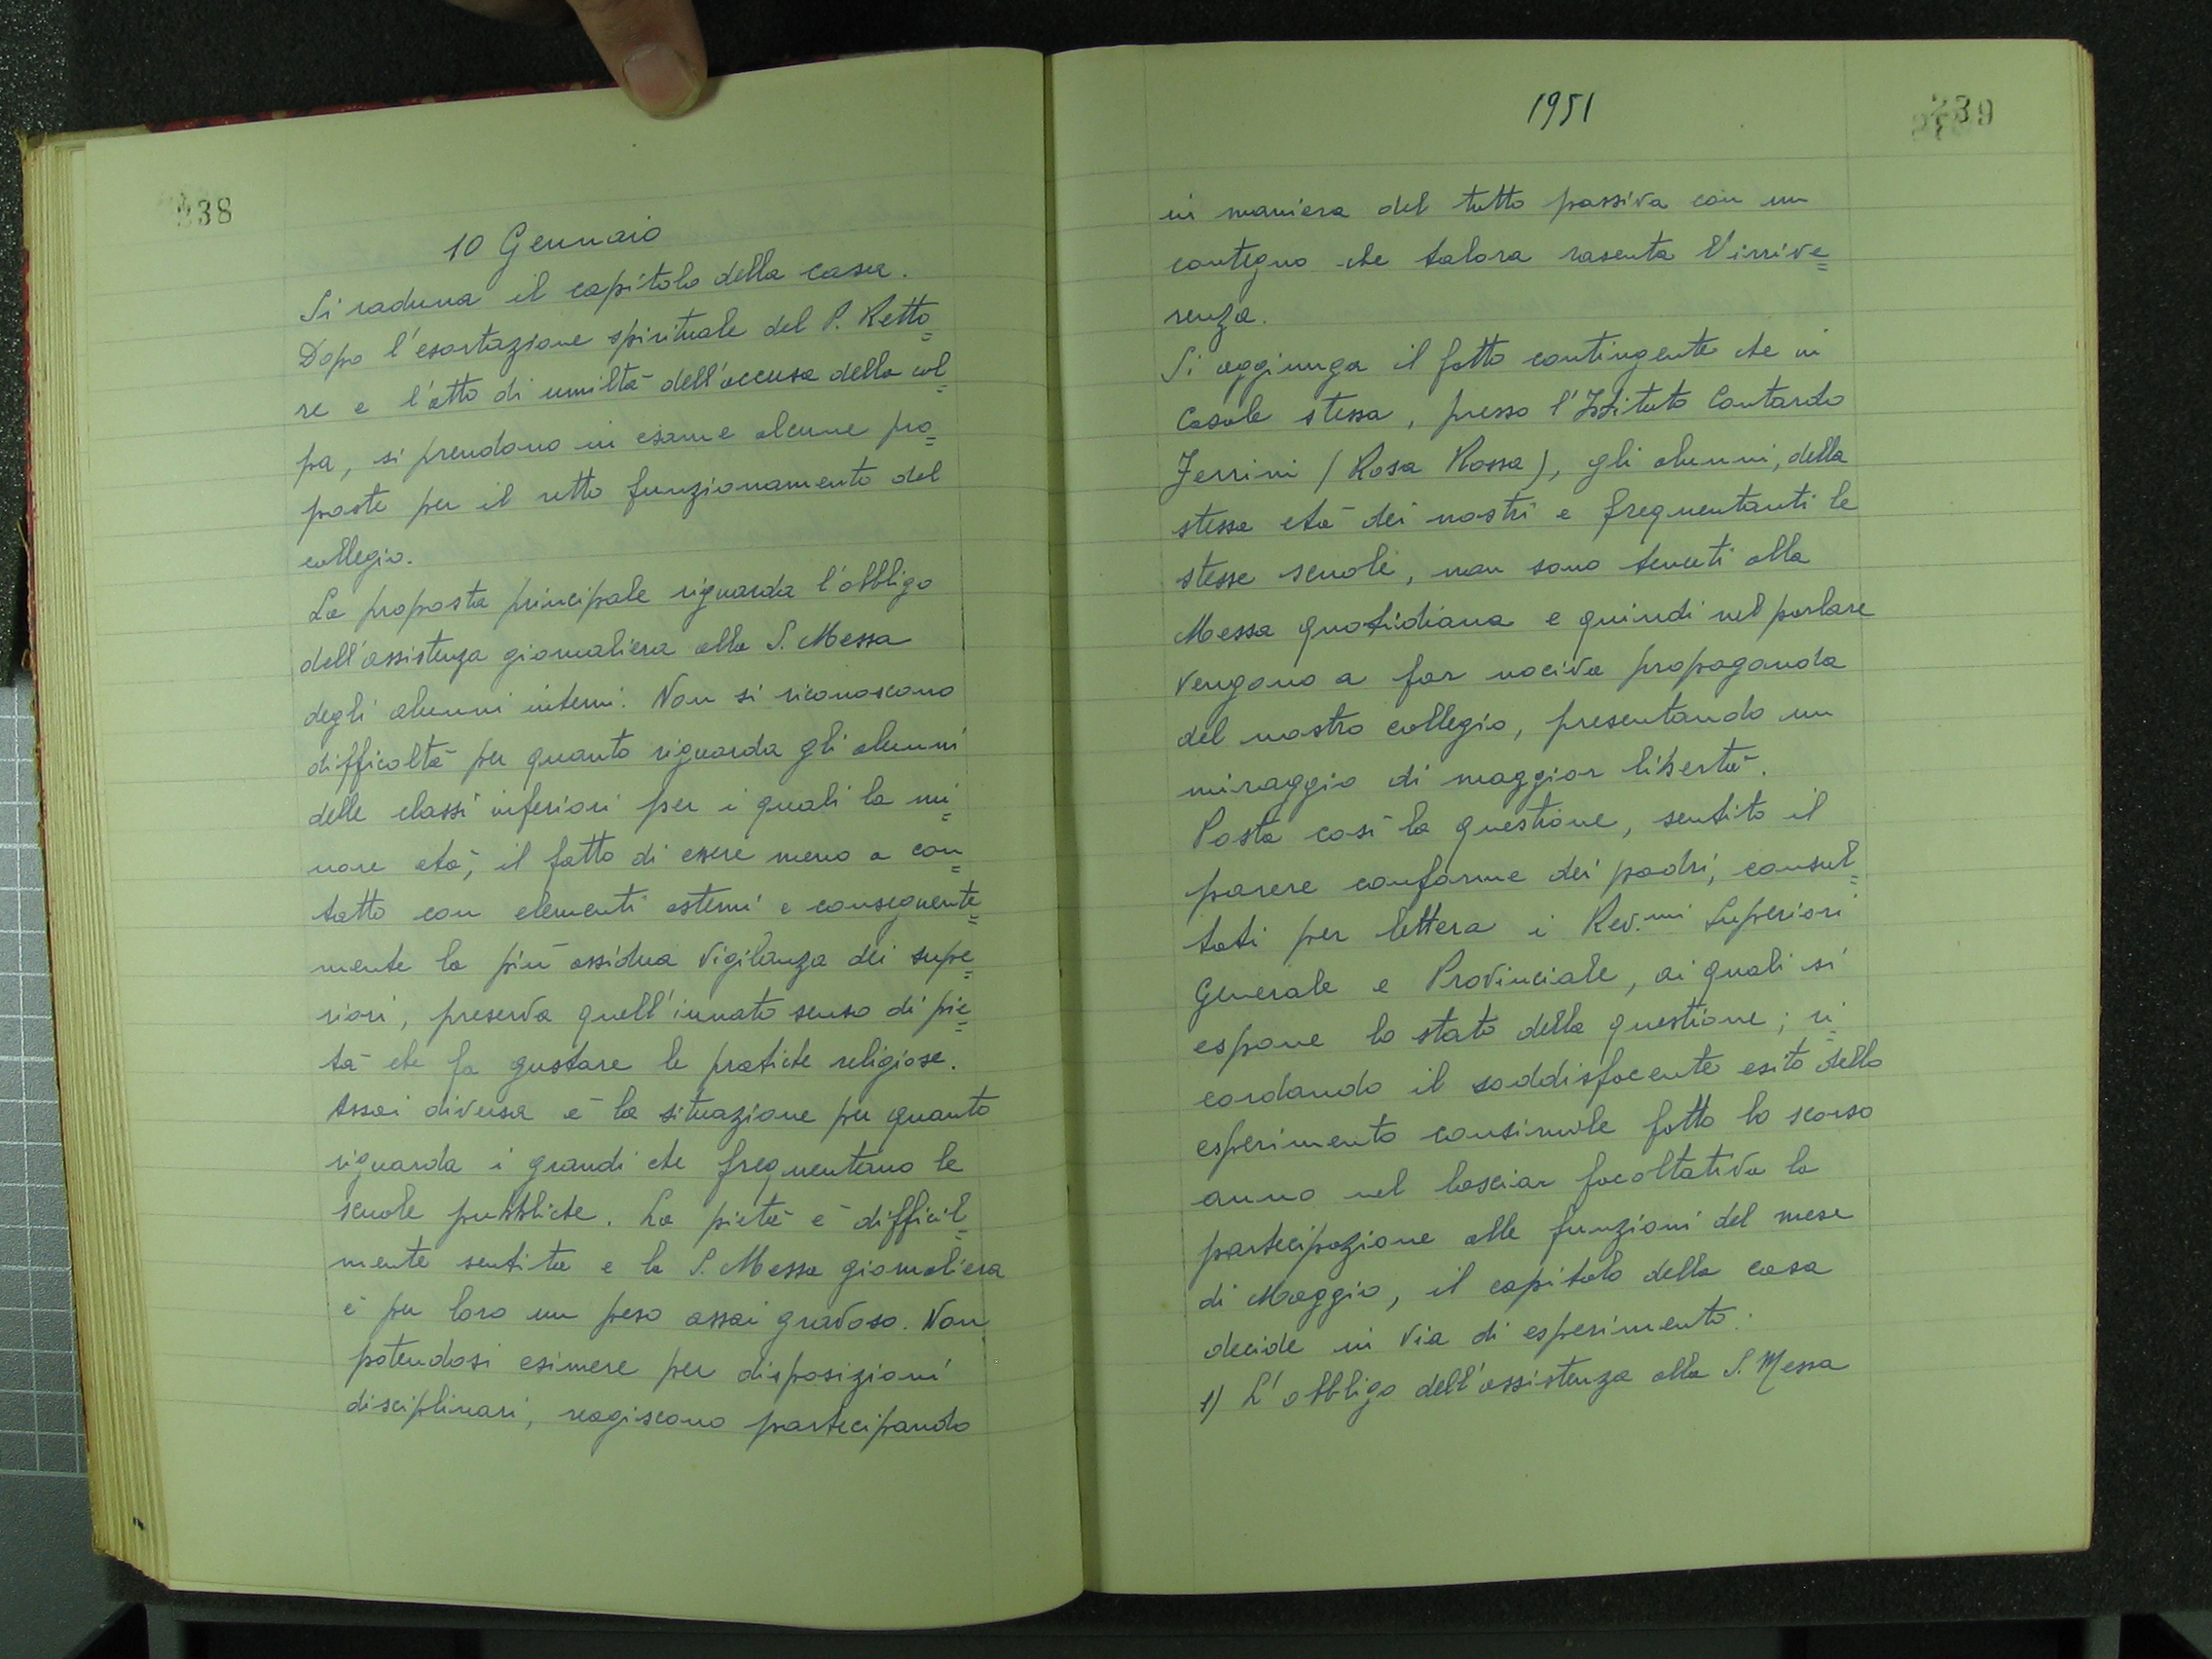 238
10 Gennaio
Si raduna il capitolo della casa.
Dopo l'esortazione spirituale del P. Retto=
re e l'atto di umiltà dell'accusa della col=
pa, si prendono in esame alcune pro=
poste per il retto funzionamento del
collegio.
La proposta principale riguarda l'obbligo
dell'assistenza giornaliera alla S. Messa
degli alunni interni. Non si riconoscono
difficoltà per quanto riguarda gli alunni
delle classi inferiori per i quali la mi=
nore età, il fatto di essere meno a con=
tatto con elementi esterni e conseguente=
mente la più assidua vigilanza dei supe=
riori, preserva quell'innato senso di pie=
tà che fa gustare le pratiche religiose.
Assai diversa è la situazione per quanto
riguarda i grandi che frequentano le
scuole pubbliche. La pietà è difficil=
mente sentita e la S. Messa giornaliera
è per loro un peso assai gravoso. Non
potendosi esimere per disposizioni
disciplinari, reagiscono partecipando
1951
239
in maniera del tutto passiva con un
contegno che talora rasenta l'irrive=
renza.
Si aggiunga il fatto contingente che in
Casale stessa, presso l'Istituto Contardo
Ferrini (Rosa Rossa), gli alunni, della
stessa età dei nostri e frequentanti le
stesse scuole, non sono tenuti alla
Messa quotidiana e quindi nel parlare
vengono a far nociva propaganda
del nostro collegio, presentando un
miraggio di maggior libertà.
Posta così la questione, sentito il
parere conforme dei padri, consul=
tati per lettera i Rev.mi Superiori
Generale e Provinciale, ai quali si
espone lo stato della questione; ri=
cordando il soddisfacente esito dello
esperimento consimile fatto lo scorso
anno nel lasciar facoltativa la
partecipazione alle funzioni del mese
di Maggio, il capitolo della casa
decide in via di esperimento:
1) L'obbligo dell'assistenza alla S. Messa